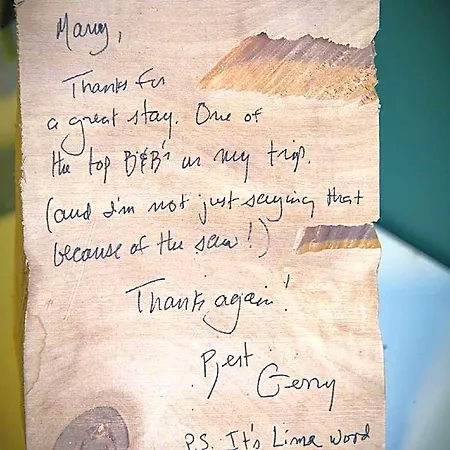 Mary,
Thanks for
a great stay. One of
the top B&B's on my trip.
(and I'm not just saying that
because of the saw!)
Thanks again!
Best
Gerry
P.S. It's Lima wood